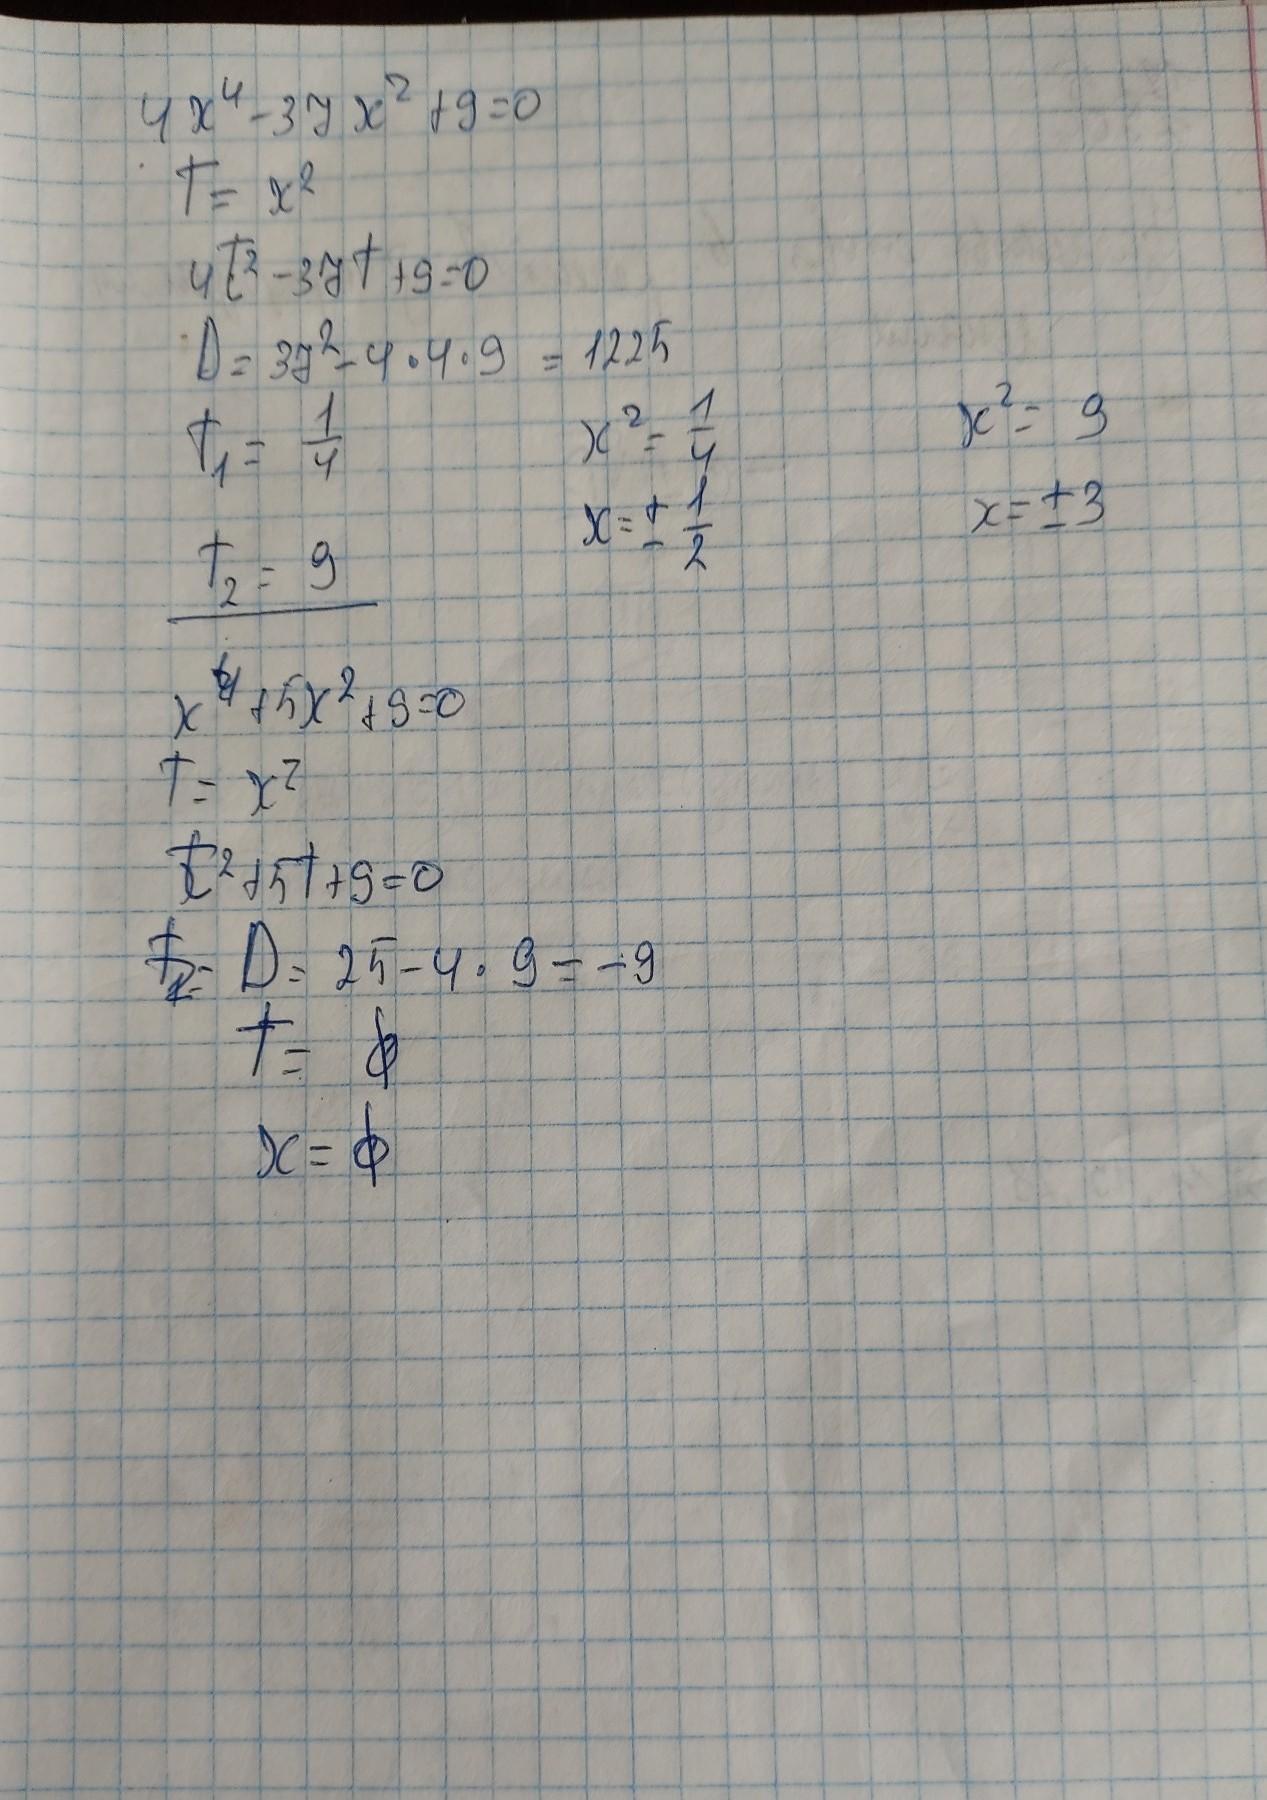 4x⁴-37x²+9=0
T= x²
4t²-37t+9=0
D= 37²-4·4·9 = 1225
T₁= 1/4 x²= 1/4 x²= 9
x=± 1/2 x=±3
T₂= 9
x⁴+5x²+9=0
T= x²
t²+5t+9=0
D= 25-4·9=-9
T= ϕ
x= ϕ